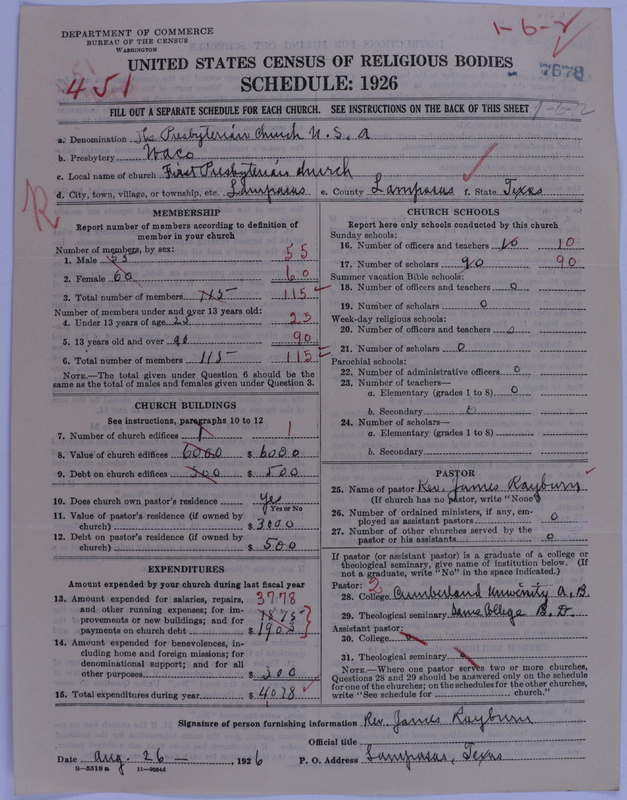 DEPARTMENT OF COMMERCE
BUREAU OF THE CENSUS
WASHINGTON
1-6-2
UNITED STATES CENSUS OF RELIGIOUS BODIES
7678
451
SCHEDULE: 1926
FILL OUT A SEPARATE SCHEDULE FOR EACH CHURCH. SEE INSTRUCTIONS ON THE BACK OF THIS SHEET
1-6-2
a. Denomination The Presbyterian Church U. S. A
b. Presbytery Waco
c. Local name of church First Presbyterian church
d. City, town, village, or township, etc. Lampasas e. County Lampasas f. State Texas
R
MEMBERSHIP
Report number of members according to definition of
member in your church
Number of members, by sex:
1. Male 55 55
2. Female 60 60
3. Total number of members 115 115
Number of members under and over 13 years old:
4. Under 13 years of age 25 25
5. 13 years old and over 90 90
6. Total number of members 115 115
NOTE.—The total given under Question 6 should be
same as the total of males and females given under Question 3.
CHURCH BUILDINGS
See instructions, paragraphs 10 to 12
7. Number of church edifices 1 1
8. Value of church edifices 6000 $ 6000
9. Debt on church edifices 500 $ 500
10. Does church own pastor's residence yes
Yes or No
11. Value of pastor's residence (if owned by
church) $ 3000
12. Debt on pastor's residence (if owned by
church) $ 500
EXPENDITURES
Amount expended by church during last fiscal year
13. Amount expended for salaries, repairs, 3778
and other running expenses; for im- 1875
provements or new buildings; and for
payments on church debt $ 1903
14. Amount expended for benevolences, in-
cluding home and foreign missions; for
denominational support; and for all
other purposes $ 300
15. Total expenditures during year $ 4078
CHURCH SCHOOLS
Report here only schools conducted by this church
Sunday schools:
16. Number of officers and teachers 10 10
17. Number of scholars 90 90
Summer vacation Bible schools:
18. Number of officers and teachers 0
19. Number of scholars 0
Week-day religious schools:
20. Number of officers and teachers 0
21. Number of scholars 0
Parochial schools:
22. Number of administrative officers 0
23. Number of teachers—
a. Elementary (grades 1 to 8) 0
b. Secondary 0
24. Number of scholars—
a. Elementary (grades 1 to 8)
b. Secondary
PASTOR
25. Name of pastor Rev. James Rayburn
(If church has no pastor, write "None")
26. Number of ordained ministers, if any, em-
ployed as assistant pastors 0
27. Number of other churches served by the
pastor or his assistants 0
If pastor (or assistant pastor) is a graduate of a college or
theological seminary, give name of institution below. (If
not a graduate, write "No" in the space indicated.)
Pastor: 2
28. College Cumberland University A. B.
29. Theological seminary Same College B. D.
Assistant pastor:
30. College 0
31. Theological seminary 0
NOTE.—Where one pastor serves two or more churches,
Questions 28 and 29 should be answered only on the schedule
for one of the churches; on the schedules for the other churches,
write "See schedule for church."
Signature of person furnishing information Rev. James Rayburn
Official title
Date Aug. 26 —, 1926 P. O. Address Lampasas, Texas
8—5518a